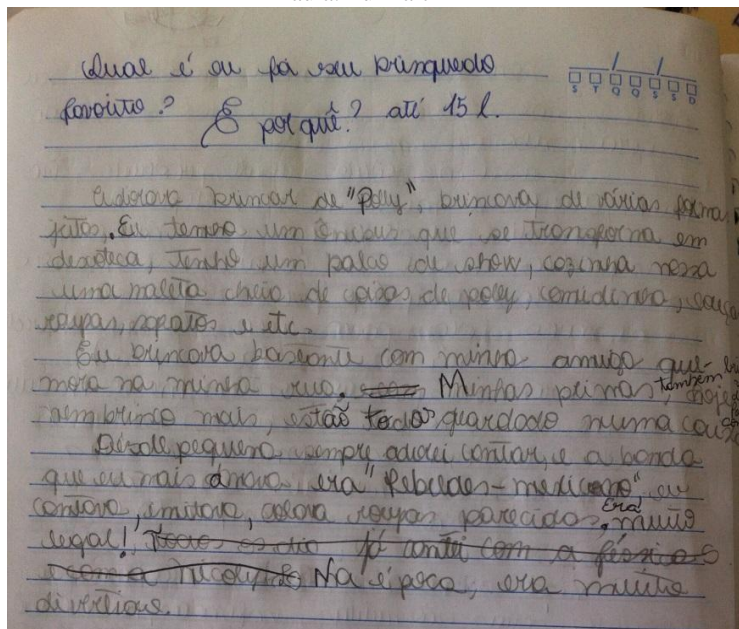 Qual é ou foi seu brinquedo
S T Q Q S S D
favorito? E por quê? até 15 l.
Adorava brincar de "Polly", brincava de várias forma
jeitos. Eu tenho um ônibus que se transforma em
discoteca, tenho um palco de show, cozinha nessa
uma maleta cheia de coisas de polly, comidinha,
roupas, sapatos e etc.
Eu brincava bastante com minha amiga que
mora na minha rua. Minhas primas também,
nem brinco mais, estão todas guardado numa caixa
Desde pequena sempre adorei cantar, e a banda
que eu mais amava era "Rebeldes - mexicano" eu
cantava, imitava, usava roupas parecidas. Era muito
legal! já cantei com a
com a Na época, era muito